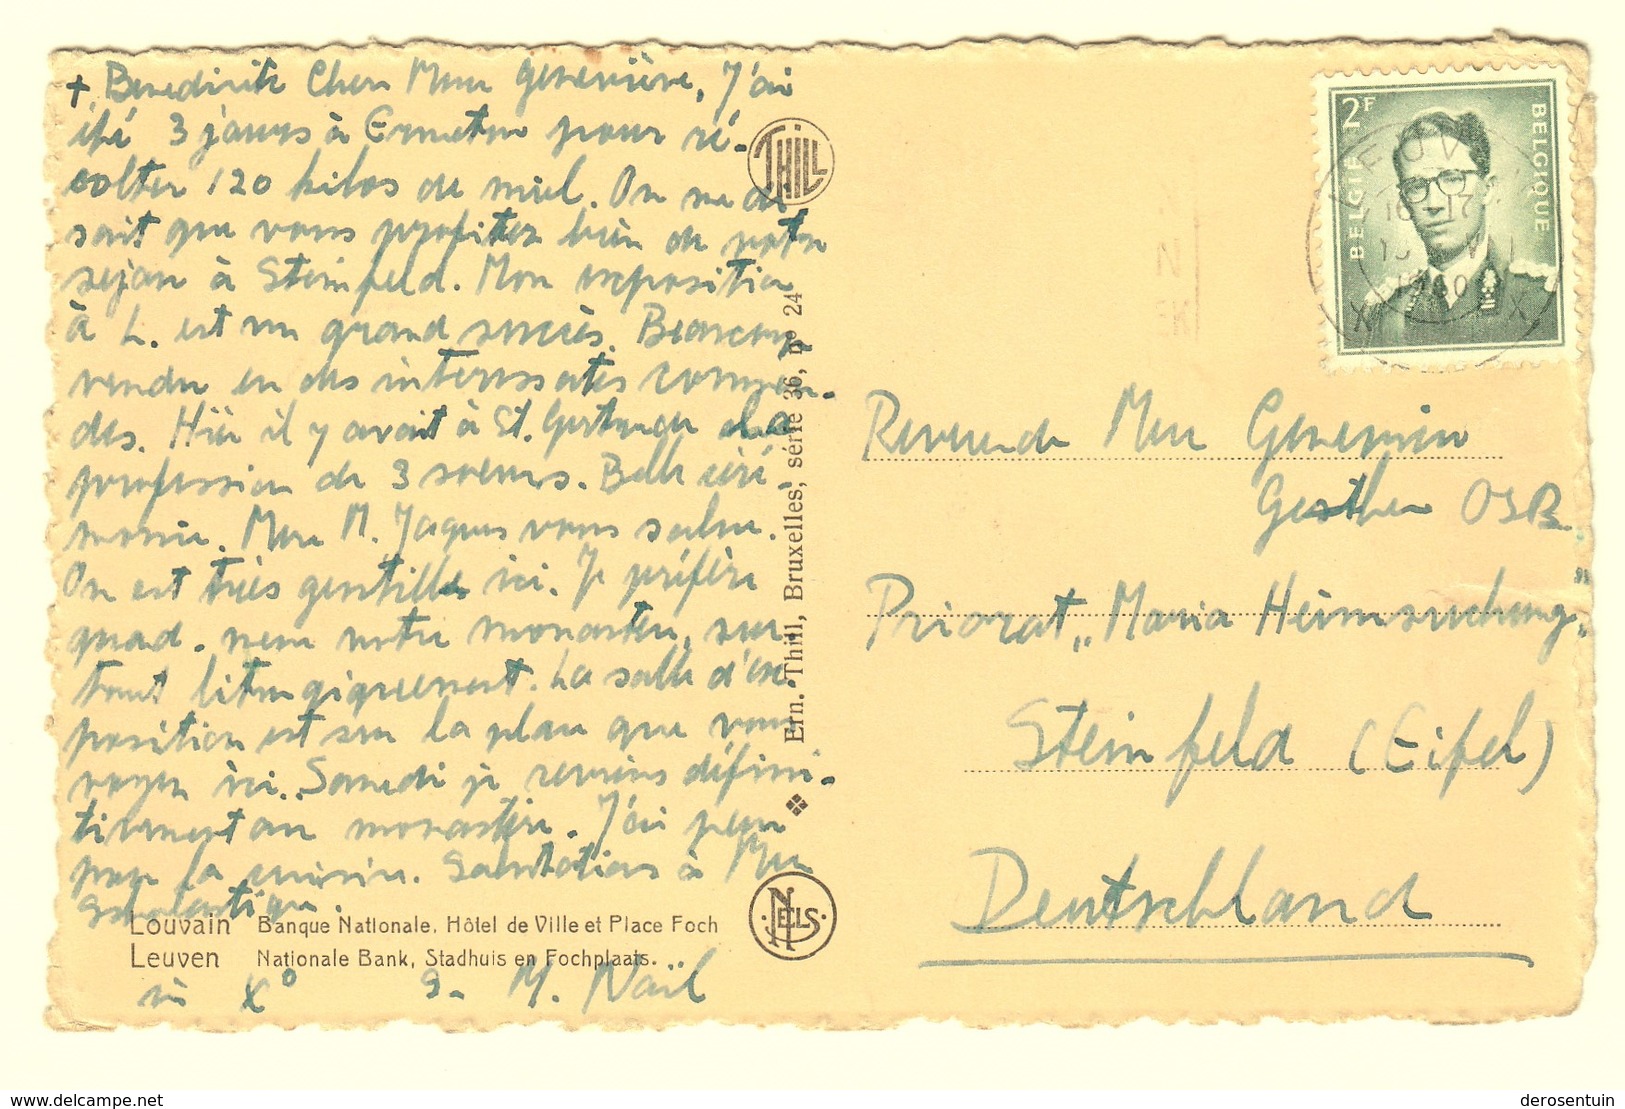 + Benedicite Chere Mere Geneviève, J'ai
été 3 jours à Ermeton pour ré-
colter 120 kilos de miel. On me di
sait que vous profitez bien de votre
sejour à Steinfeld. Mon exposition
à L. est un grand succès. Beaucoup
vendu en des interessantes comman-
des. Hier il y avait à St. Gertrude la
profession de 3 soeurs. Belle céré-
monie. Mere M. Jaques vous salue.
On est très gentille ici. Je préfère
quand. meme notre monastère, sur-
tout liturgiquement. La salle d'ex-
position est sur la place que vous
voyez ici. Samedi je reviens défini-
tivement au monastère. J'ai peur
pour la cuisine. Salutations à Mere
Scholastique.
in Xº S. M. Naël
Louvain Banque Nationale, Hôtel de Ville et Place Foch
Leuven Nationale Bank, Stadhuis en Fochplaats.
THILL
Ern. Thill, Bruxelles, série 36, nº 24
NELS
2F
BELGIE
BELGIQUE
LEUV
16-17
1960
X X
Reverende Mere Genevieve
OSB.
Priorat „Maria Heimsuchung"
Steinfeld (Eifel)
Deutschland
delcampe.net
derosentuin